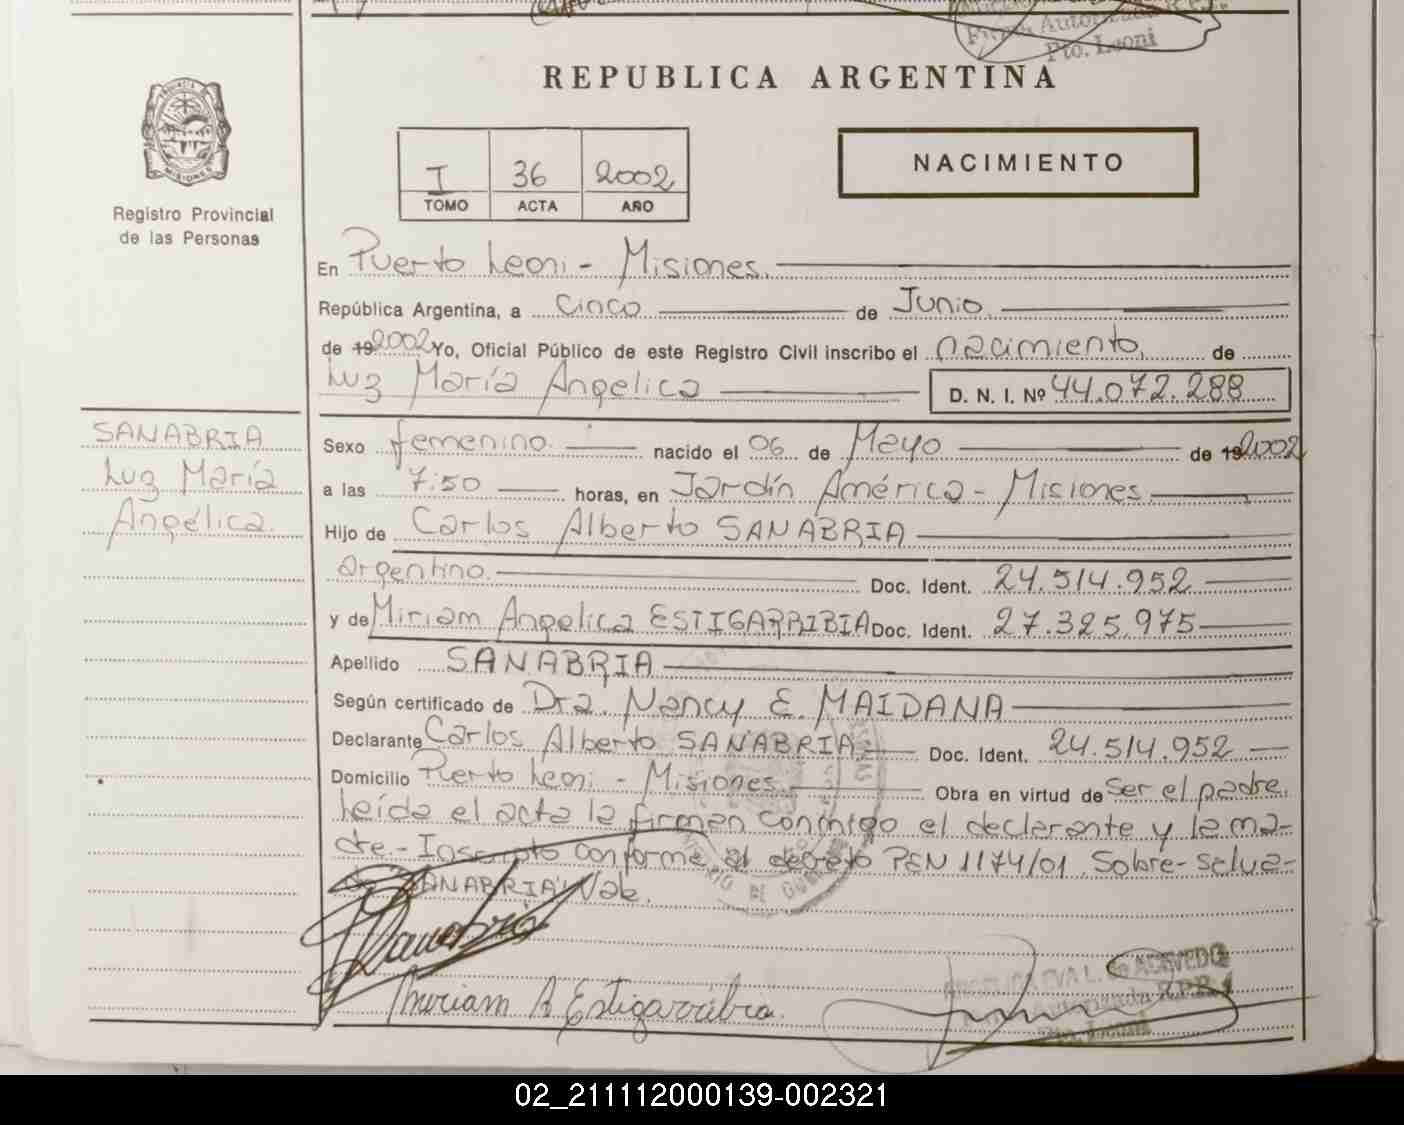 Firma Autorizada R.P.P.
Pto. Leoni
REPUBLICA ARGENTINA
PROVINCIA DE
MISIONES
Registro Provincial
de las Personas
I 36 2002
TOMO ACTA AÑO
NACIMIENTO
En Puerto Leoni - Misiones.
República Argentina, a Cinco de Junio
de 192002 Yo, Oficial Público de este Registro Civil inscribo el nacimiento de
Luz María Angelica D. N. I. Nº 44.072.288
SANABRIA
Luz María
Angélica.
Sexo femenino. nacido el 06 de Mayo de 192002
a las 7:50 horas, en Jardín América - Misiones
Hijo de Carlos Alberto SANABRIA
argentino. Doc. Ident. 24.514.952
y de Miriam Angelica ESTIGARRIBIA Doc. Ident. 27.325.975
Apellido SANABRIA
Según certificado de Dra. Nancy E. MAIDANA
Declarante Carlos Alberto SANABRIA Doc. Ident. 24.514.952
Domicilio Puerto Leoni - Misiones Obra en virtud de Ser el padre.
Leída el acta la firman conmigo el declarante y la ma-
dre - Inscripto conforme al decreto PEN 1174/01. Sobre-salva-
SANABRIA Vale.
Sanabria
Miriam A Estigarribia.
EVA L. de ACEVEDO
Autorizada R.P.P.
Pto. Leoni
02_211112000139-002321